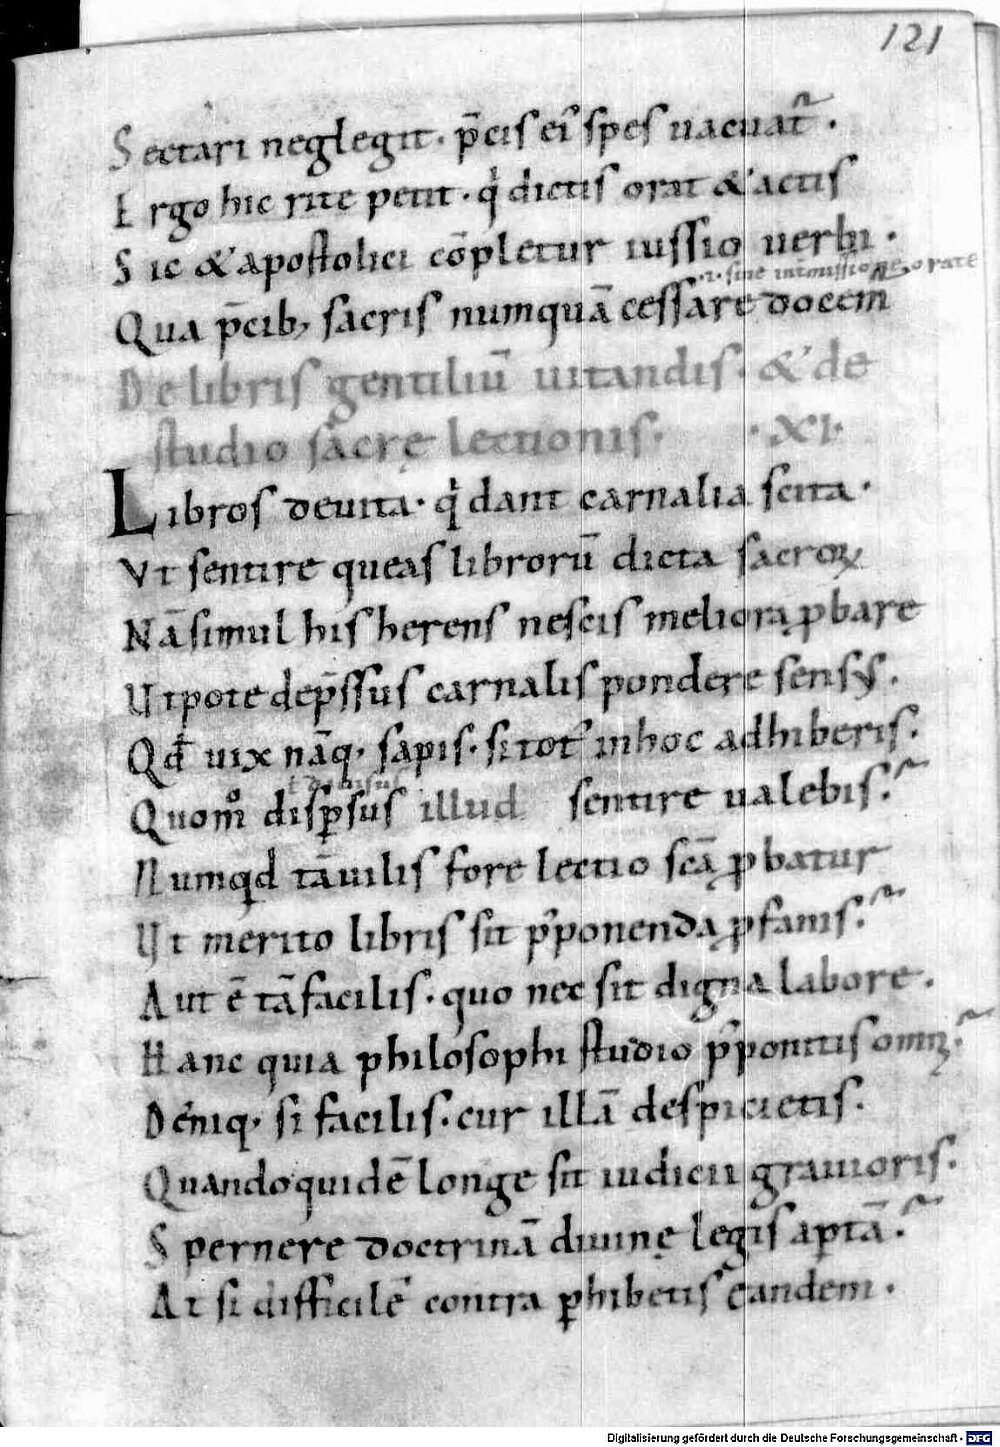 121
Sectari neglegit. p̄cis ei᷒ spes uacuat᷒.
Ergo hic rite petit. qͥ dictis orat & actis
Sic & apostolici cōpletur iussio uerbi.
.i. sine int̄missione orate
Qua p̄cib; sacris numquā cessare docem᷒
De libris gentiliū uitandis. & de
studio sacrę lectionis. .XI.
Libros deuita. qͥ dant carnalia scita.
Vt sentire queas librorū dicta sacroꝝ
Nā simul his herens nescis meliora ꝓbare
Utpote dep̄ssus carnalis pondere sensus.
Qđ uix nāq; sapis. si tot᷒ in hoc adhiberis.
ł diuisus
Quom̊ disꝑsus illud sentire ualebis?
Numqͥd tā uilis fore lectio scā ꝓbatur
Ut merito libris sit p̄ponenda ꝓfanis?
Aut ē tā facilis. quo nec sit digna labore.
Hanc quia philosophi studio p̄ponitis omīs?
Deniq; si facilis. cur illā despicietis.
Quando quidē longe sit iudicii grauioris.
Spernere doctrinā diuinę legis aptā?
At si difficilē contra ꝑhibetis eandem.
Digitalisierung gefördert durch die Deutsche Forschungsgemeinschaft - DFG